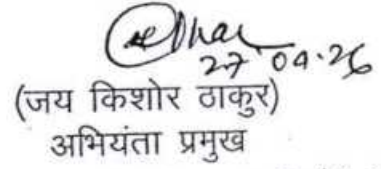 27.09.26
(जय किशोर ठाकुर)
अभियंता प्रमुख